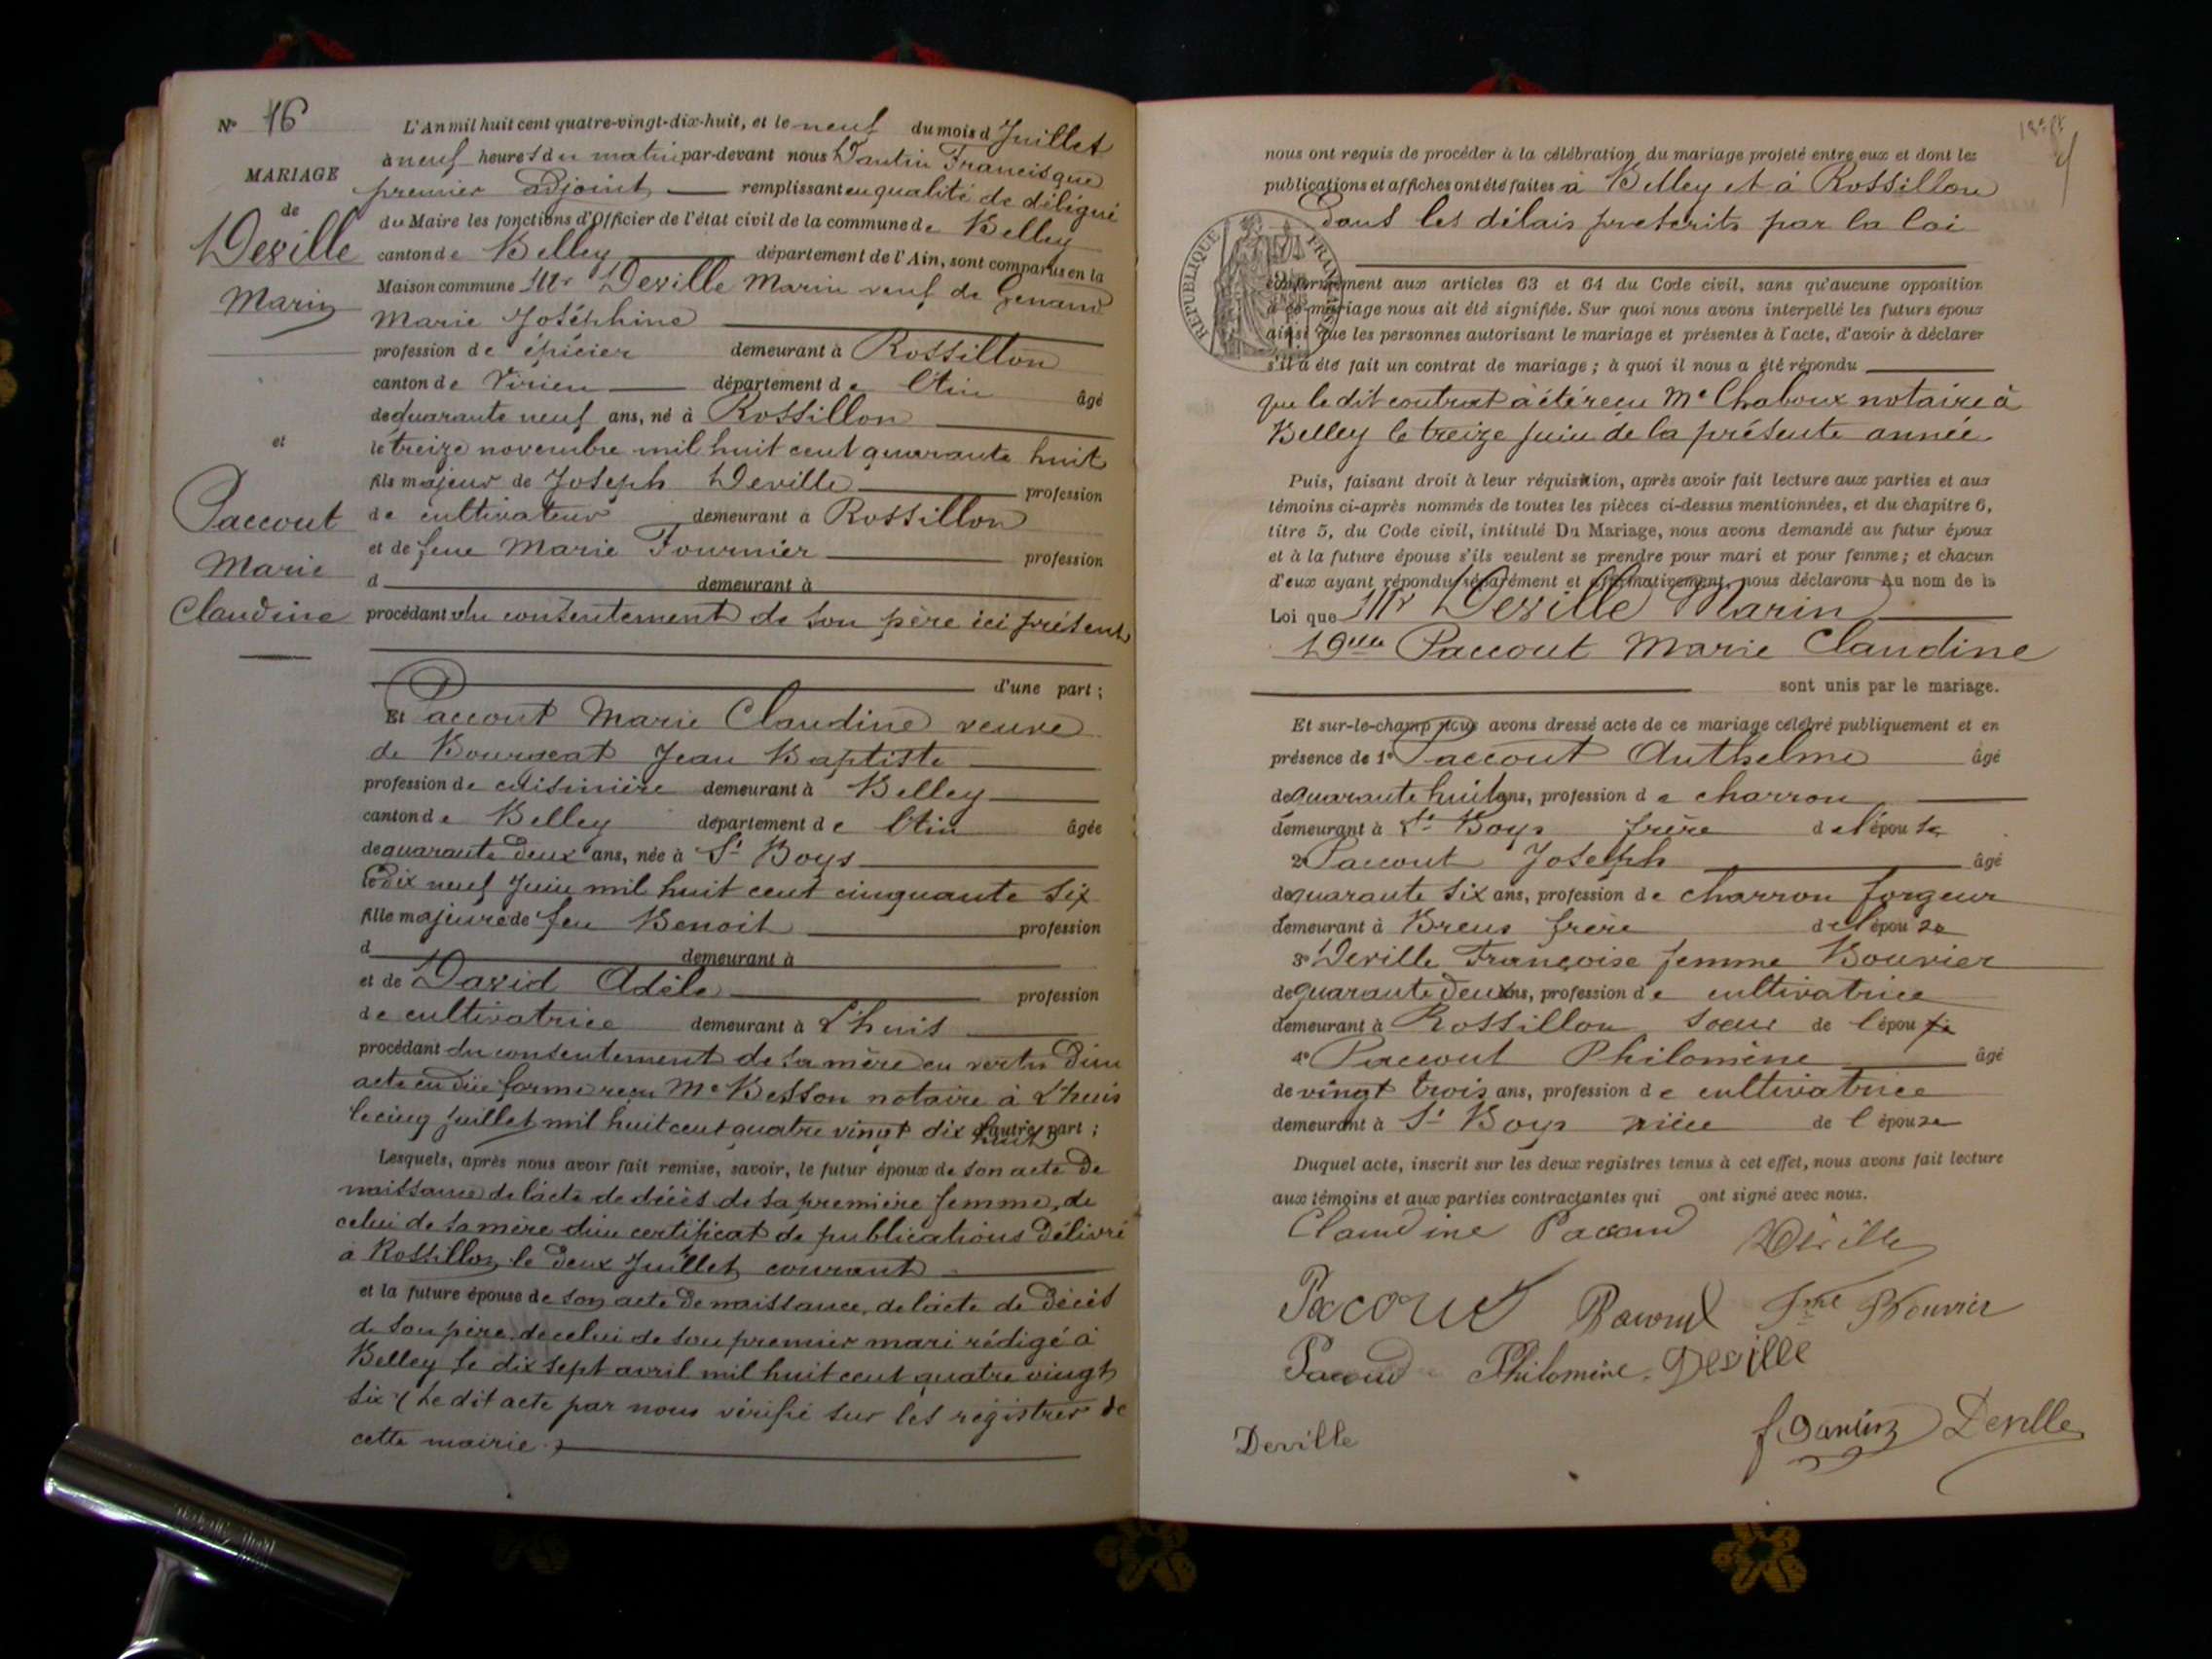 N° 16
MARIAGE
de
Deville
Marin
et
Paccout
Marie
Claudine
L'An mil huit cent quatre-vingt-dix-huit, et le neuf du mois d Juillet
à neuf heures du matin par-devant nous Dantin Francisque
premier adjoint remplissant en qualité de délégué
du Maire les fonctions d'Officier de l'état civil de la commune de Belley
canton de Belley département de l'Ain, sont comparus en la
Maison commune Mr Deville Marin veuf de
Marie Joséphine
profession de épicier demeurant à Rossillon
canton de Virieu département de l'Ain âgé
de quarante neuf ans, né à Rossillon
le treize novembre mil huit cent quarante huit
fils majeur de Joseph Deville profession
de cultivateur demeurant à Rossillon
et de feue Marie Fournier profession
d demeurant à
procédant du consentement de son père ici présent
d'une part ;
Et Paccout Marie Claudine veuve
de Jean Baptiste
profession de cuisinière demeurant à Belley
canton de Belley département de l'Ain âgée
de quarante deux ans, née à St Boys
le dix neuf Juin mil huit cent cinquante six
fille majeure de feu Benoit profession
d demeurant à
et de David Adèle profession
de cultivatrice demeurant à L'huis
procédant du consentement de sa mère en vertu d'un
acte en due forme reçu Me Besson notaire à L'huis
le cinq Juillet mil huit cent quatre vingt dix huit d'autre part ;
Lesquels, après nous avoir fait remise, savoir, le futur époux de son acte de
naissance de l'acte de décès de sa première femme, de
celui de sa mère d'un certificat de publications délivré
à Rossillon le deux Juillet courant
et la future épouse de son acte de naissance, de l'acte de décès
de son père, de celui de son premier mari rédigé à
Belley le dix sept avril mil huit cent quatre vingt
six (Le dit acte par nous vérifié sur les registres de
cette mairie.)
nous ont requis de procéder à la célébration du mariage projeté entre eux et dont les
publications et affiches ont été faites à Belley et à Rossillon
dans les délais prescrits par la loi
RÉPUBLIQUE FRANÇAISE
conformément aux articles 63 et 64 du Code civil, sans qu'aucune opposition
à ce mariage nous ait été signifiée. Sur quoi nous avons interpellé les futurs époux
ainsi que les personnes autorisant le mariage et présentes à l'acte, d'avoir à déclarer
s'il a été fait un contrat de mariage ; à quoi il nous a été répondu
que le dit contrat a été reçu Me Chaboux notaire à
Belley le treize juin de la présente année
Puis, faisant droit à leur réquisition, après avoir fait lecture aux parties et aux
témoins ci-après nommés de toutes les pièces ci-dessus mentionnées, et du chapitre 6,
titre 5, du Code civil, intitulé Du Mariage, nous avons demandé au futur époux
et à la future épouse s'ils veulent se prendre pour mari et pour femme ; et chacun
d'eux ayant répondu séparément et affirmativement, nous déclarons au nom de la
Loi que Mr Deville Marin
Delle Paccout Marie Claudine
sont unis par le mariage.
Et sur-le-champ nous avons dressé acte de ce mariage célébré publiquement et en
présence de 1° Paccout Anthelme âgé
de quarante huit ans, profession de charron
demeurant à St Boys frère de l'épouse
2° Paccout Joseph âgé
de quarante six ans, profession de charron forgeur
demeurant à Brens frère de l'épouse
3° Deville Françoise femme Bouvier
de quarante deux ans, profession de cultivatrice
demeurant à Rossillon soeur de l'époux
4° Paccout Philomène âgé
de vingt trois ans, profession de cultivatrice
demeurant à St Boys nièce de l'épouse
Duquel acte, inscrit sur les deux registres tenus à cet effet, nous avons fait lecture
aux témoins et aux parties contractantes qui ont signé avec nous.
Claudine Paccoud Deville
Pacout Pacout Fme Bouvier
Pacoud Philomène Deville
Deville f Dantin Deville